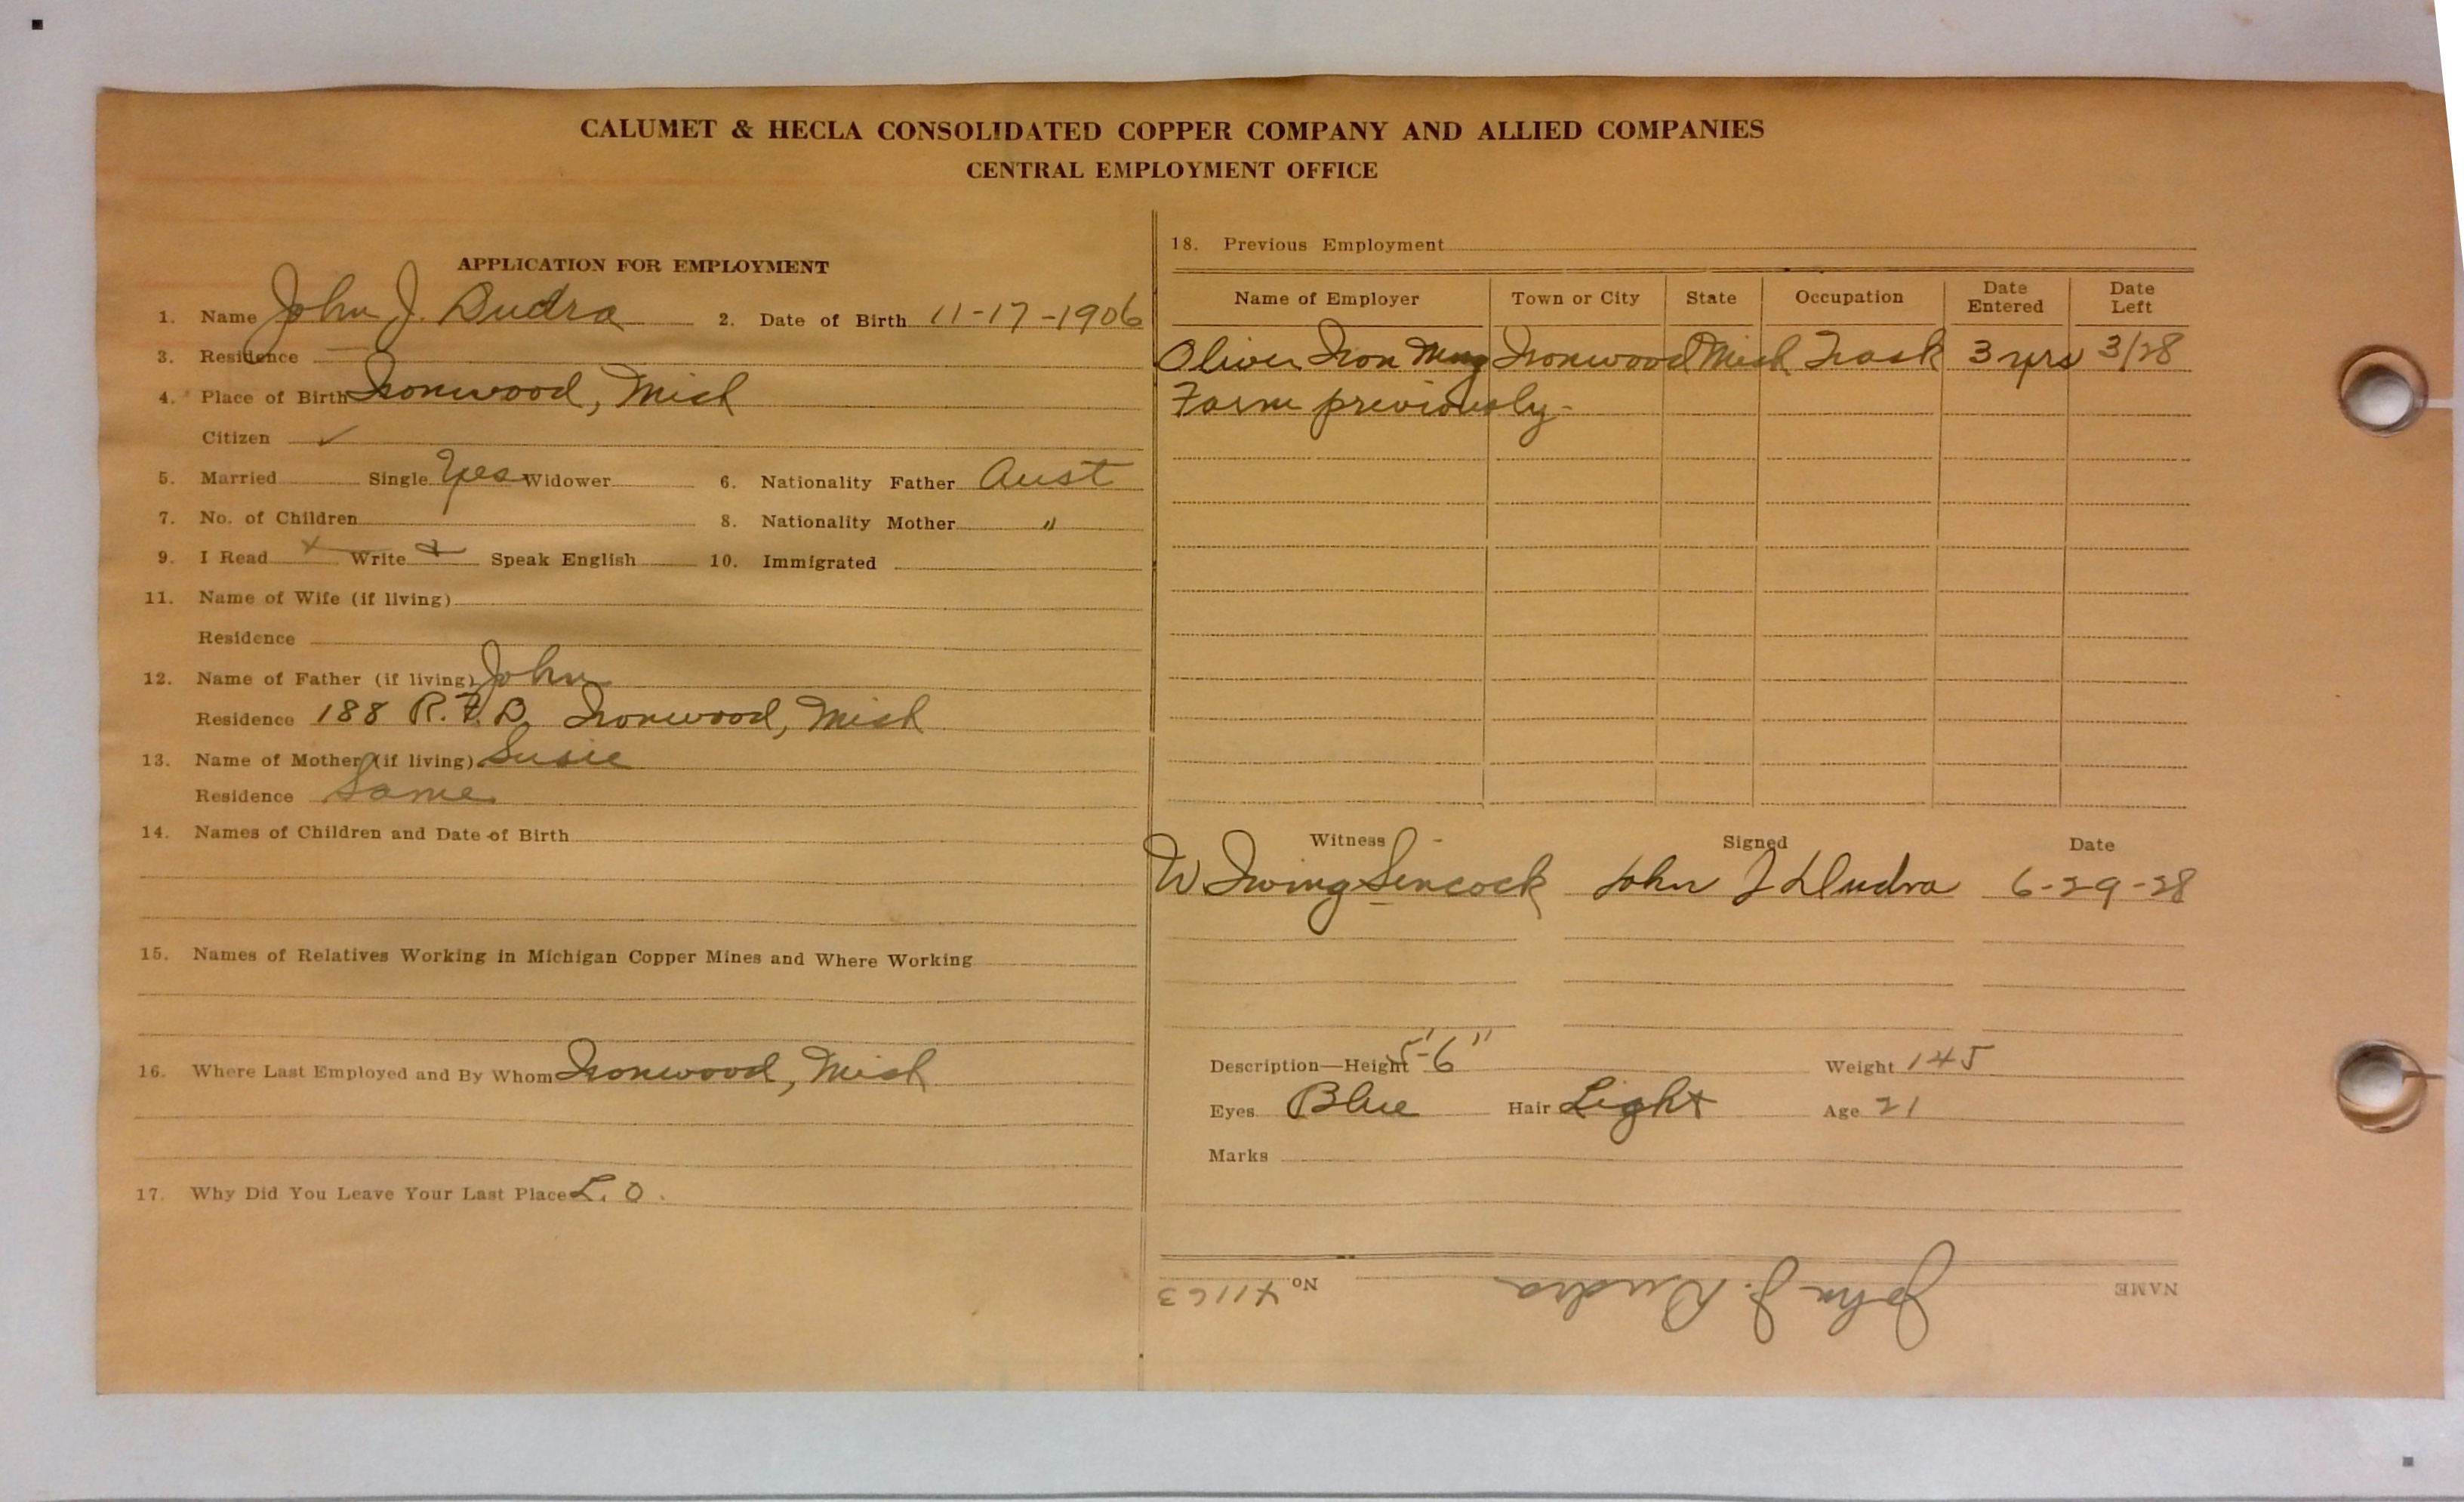 CALUMET & HECLA CONSOLIDATED COPPER COMPANY AND ALLIED COMPANIES
CENTRAL EMPLOYMENT OFFICE
APPLICATION FOR EMPLOYMENT
1. Name John J. Dudra 2. Date of Birth 11-17-1906
3. Residence
4. Place of Birth Ironwood, Mich
Citizen ✓
5. Married Single Yes Widower 6. Nationality Father Aust
7. No. of Children 8. Nationality Mother "
9. I Read + Write + Speak English 10. Immigrated
11. Name of Wife (if living)
Residence
12. Name of Father (if living) John
Residence 188 R.F.D. Ironwood, Mich
13. Name of Mother (if living) Susie
Residence Same
14. Names of Children and Date of Birth
15. Names of Relatives Working in Michigan Copper Mines and Where Working
16. Where Last Employed and By Whom Ironwood, Mich
17. Why Did You Leave Your Last Place L. O.
18. Previous Employment
Name of Employer Town or City State Occupation Date Entered Date Left
Oliver Iron Mng Ironwood Mich 3 yrs 3/28
Farm previously-
Witness Signed Date
W. Irving Sincock John J Dudra 6-29-28
Description—Height 5'-6" Weight 145
Eyes Blue Hair Light Age 21
Marks
NAME John J. Dudra No. 41163